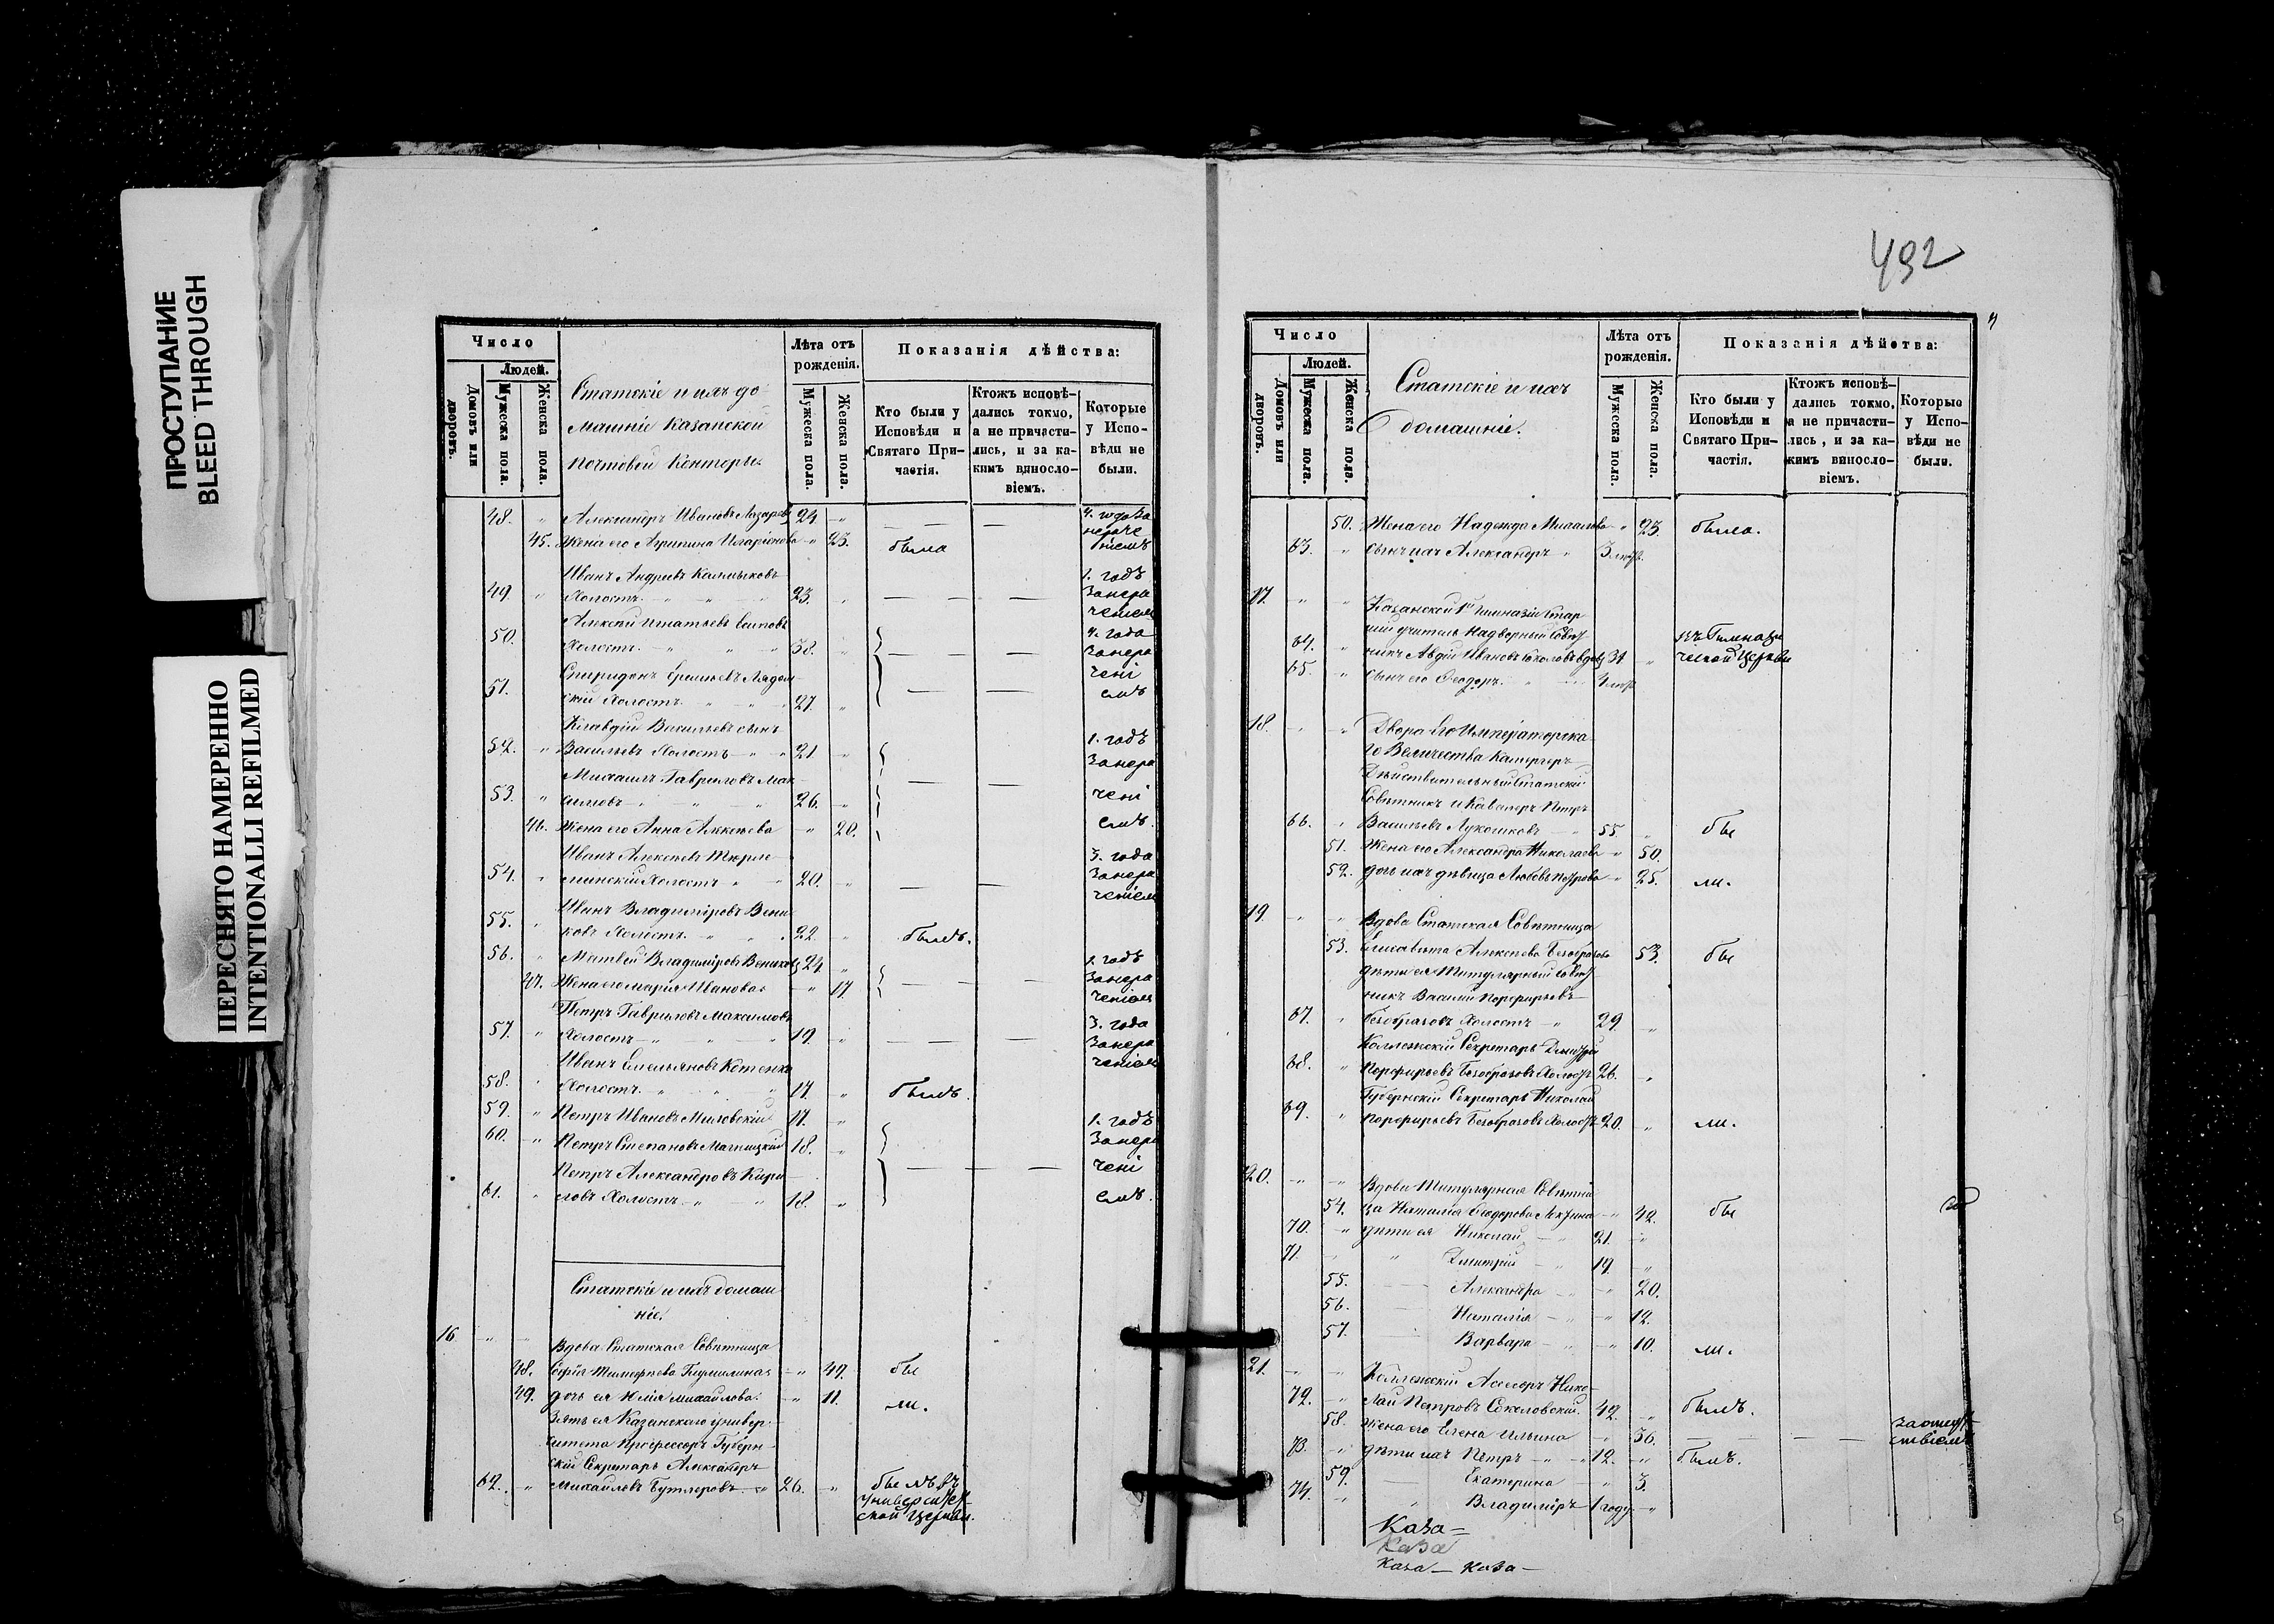 ПРОСТУПАНИЕ
BLEED THROUGH
ПЕРЕСНЯТО НАМЕРЕННО
INTENTIONALLI REFILMED
Число
Людей.
Домовъ или дворовъ.
Мужеска пола.
Женска пола.
Статскіе и ихъ до
машніе Казанской
почтовой Конторы:
Лѣта отъ
рожденія.
Мужеска пола.
Женска пола.
Показанія дѣйства:
Кто были у
Исповѣди и
Святаго При-
частія.
Ктожъ исповѣ-
дались токмо,
а не причасти-
лись, и за ка-
кимъ виносло-
віемъ.
Которые
у Испо-
вѣди не
были.
48. " Александръ Ивановъ Лазаревъ 24. " — — 4. года за
нераче
45. Жена его Агрипина Иларіонова " 23. была ніемъ
Иванъ Андреевъ Калмыковъ 1. годъ
49. " Холостъ " " 23. " — — — занера
ченіем
Алексѣй Игнатьевъ 4. года
50. Холостъ. " " " 38. " — — занера
Спиридонъ чені
51. скій Холостъ. " " 27. " — — емъ
Клавдій Васильевъ сынъ
52. " Васильевъ Холостъ " " 21. " 1. годъ
занера
Михаилъ Гавриловъ Мак
53. " симовъ " " " 26. " — — чені
46. Жена его Анна Алексѣева " 20. емъ.
Иванъ Алексѣевъ Тюрле 3. года
54. " минскій Холостъ " " 20. " — — занера
ченіем
Иванъ Владиміровъ Вени
55. " ковъ Холостъ. " " 22. " былъ.
56. " Матвей Владиміровъ Вениковъ 24. " 1. годъ
занера
47. Жена его Марія Иванова " 17. — — — ченіем
Петръ Гавриловъ Максимовъ 3. года
57. " Холостъ " " " 19. " — — — занера
ченіем
Иванъ Емельяновъ Котенко
58. " Холостъ. " " " 17. " былъ.
59. " Петръ Ивановъ 17. " 1. годъ
60. " Петръ Степановъ Магницкій 18. " занера
Петръ Александровъ Кири — — — чені
61. " ловъ Холостъ " " 18. " емъ.
Статскіе и ихъ домаш
ніе.
16 " " Вдова Статская Совѣтница
48. Софія Тимофѣева " 49. бы
49. дочь ея Юлія Михайлова: " 11. ли.
Зять ея Казанскаго Универ
ситета Профессоръ Губерн
скій Секретарь Александръ
62. " Михайловъ Бутлеровъ " 26. " былъ въ
Университет
ской церкви.
492
Число
Людей.
Домовъ или дворовъ.
Мужеска пола.
Женска пола.
Статскіе и ихъ
домашніе.
Лѣта отъ
рожденія.
Мужеска пола.
Женска пола.
Показанія дѣйства:
Кто были у
Исповѣди и
Святаго При-
частія.
Ктожъ исповѣ-
дались токмо,
а не причасти-
лись, и за ка-
кимъ винословіемъ.
Которые
у Испо-
вѣди не
были.
50. Жена его Надежда " 23. была.
63. " сынъ ихъ Александръ " 3
17. " " Казанской 1й Гимназіи Стар
шій учитель Надворный Совѣт
64. никъ Авдій Ивановъ Соколовъ вдовъ 34. " въ Гимнази
ческой церкви
65. " сынъ его Феодоръ. " 4
18. " " Двора Его Императорска
го Величества Камергеръ
Дѣйствительный Статскій
Совѣтникъ и Кавалеръ Петръ
66. " Васильевъ Лукошковъ " 55 " бы
51. Жена его Александра Николаева " 50.
52. дочь ихъ дѣвица Любовь Петрова " 25. ли.
19. " " Вдова Статская Совѣтница
53. Елисавета Алексѣева Безобразова 53. бы
дѣти ея Титулярный Совѣт
никъ Василій Порфирьевъ
67. " Безобразовъ Холостъ " 29 "
Коллежскій Секретарь Дмитрій
68. " Порфирьевъ Безобразовъ Холостъ 26. "
Губернскій Секретарь Николай
69. " Порфирьевъ Безобразовъ Холостъ 20. " ли.
20. " " Вдова Титулярная Совѣтни
54. ца Наталія Феодорова " 42. бы
70. " дѣти ея Николай " 21. "
71. " " Дмитрій " 19. "
55. Александра " " 20.
56. Наталія " " 12.
57. Варвара " " 10. ли.
21. " " Коллежскій Асесоръ Нико
72. " лай Петровъ Соколовскій. 42. " былъ.
58. Жена его Елена Ильина " 36. — — — за отсут
ствіемъ
73. " дѣти ихъ Петръ " " 12. " былъ.
59. Екатерина " 3.
74. " " Владиміръ 1 году "
Каза=
Каза
Каза — Каза —